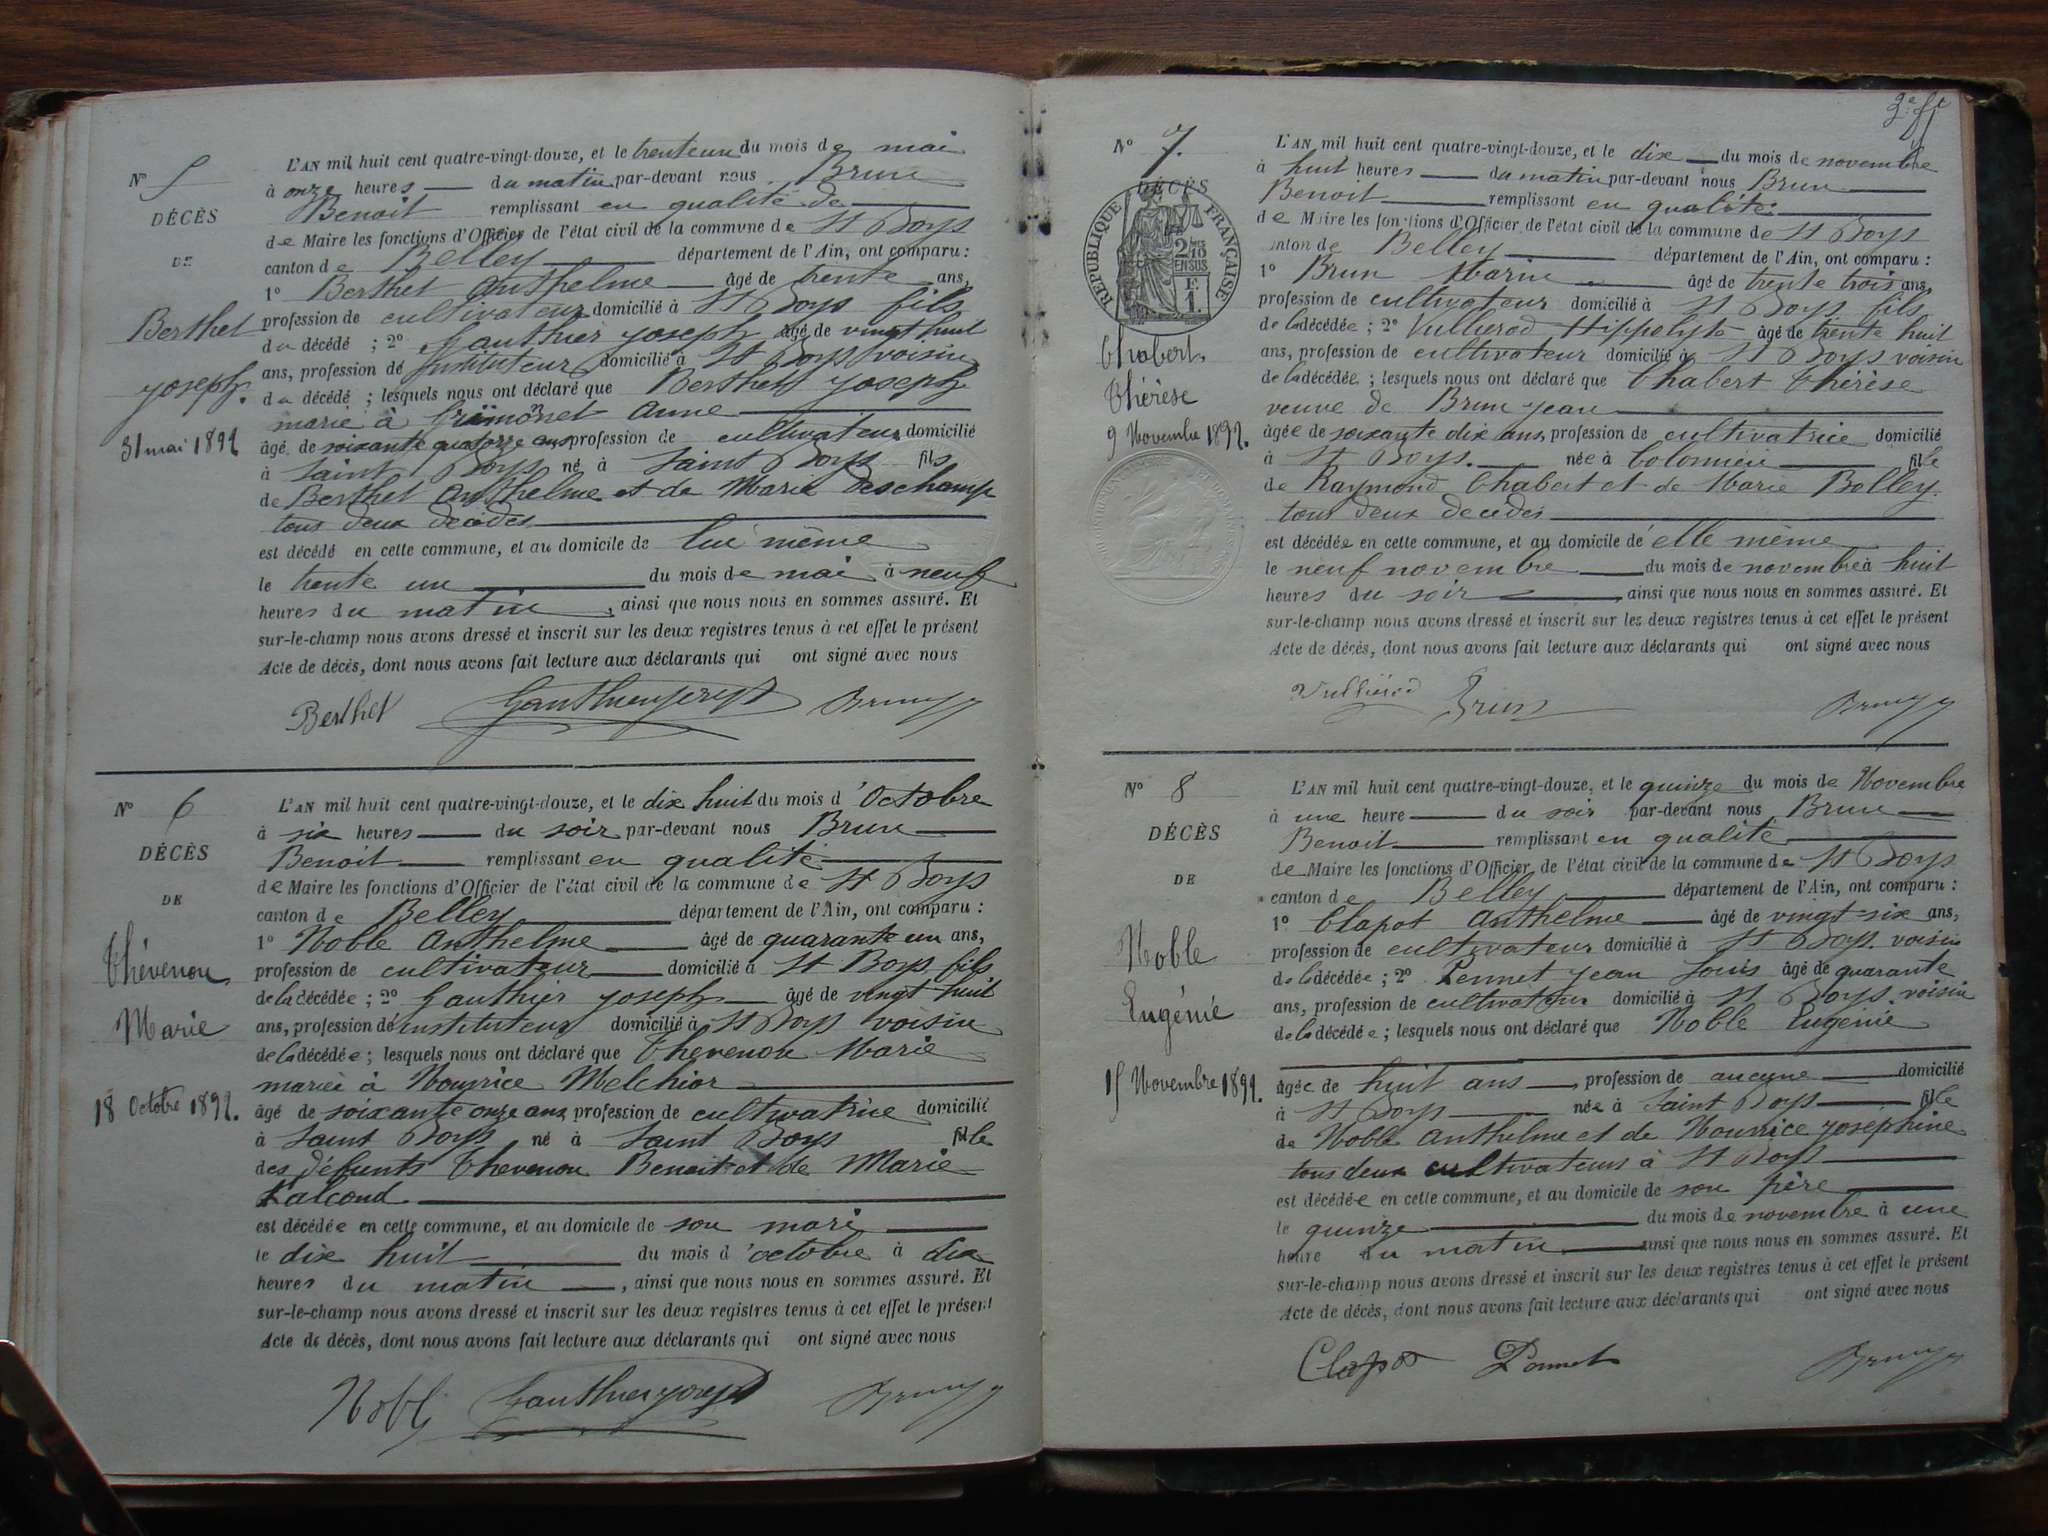 N° 5
DÉCÈS
DE
Berthet
Joseph.
31 mai 1892
L'AN mil huit cent quatre-vingt-douze, et le trente un du mois de mai
à onze heures du matin par-devant nous Brun
Benoit remplissant en qualité de
de Maire les fonctions d'Officier de l'état civil de la commune de St Boys
canton de Belley département de l'Ain, ont comparu :
1° Berthet Anthelme âgé de trente ans,
profession de cultivateur domicilié à St Boys fils
du décédé ; 2° Gauthier Joseph âgé de vingt huit
ans, profession de Instituteur domicilié à St Boys voisin
du décédé ; lesquels nous ont déclaré que Berthet Joseph
marié à Anne
âgé de soixante quatorze ans profession de cultivateur domicilié
à Saint Boys né à Saint Boys fils
de Berthet Anthelme et de Marie Deschamp
tous deux décédés
est décédé en cette commune, et au domicile de lui même
le trente un du mois de mai à neuf
heures du matin, ainsi que nous nous en sommes assuré. Et
sur-le-champ nous avons dressé et inscrit sur les deux registres tenus à cet effet le présent
Acte de décès, dont nous avons fait lecture aux déclarants qui ont signé avec nous
Berthet Gauthier Joseph Brun
N° 6
DÉCÈS
DE
Thévenon
Marie
18 Octobre 1892.
L'AN mil huit cent quatre-vingt-douze, et le dix huit du mois d'Octobre
à six heures du soir par-devant nous Brun
Benoit remplissant en qualité
de Maire les fonctions d'Officier de l'état civil de la commune de St Boys
canton de Belley département de l'Ain, ont comparu :
1° Noble Anthelme âgé de quarante un ans,
profession de cultivateur domicilié à St Boys fils
de la décédée ; 2° Gauthier Joseph âgé de vingt huit
ans, profession de instituteur domicilié à St Boys voisin
de la décédée ; lesquels nous ont déclaré que Thevenon Marie
mariée à Nourrice Melchior
âgé de soixante onze ans profession de cultivatrice domicilié
à Saint Boys né à Saint Boys fille
des défunts Thevenon Benoit et de Marie
Falcond.
est décédée en cette commune, et au domicile de son mari
le dix huit du mois d'octobre à dix
heures du matin, ainsi que nous nous en sommes assuré. Et
sur-le-champ nous avons dressé et inscrit sur les deux registres tenus à cet effet le présent
Acte de décès, dont nous avons fait lecture aux déclarants qui ont signé avec nous
Noble Gauthier Joseph Brun
2e ft
N° 7.
DÉCÈS
RÉPUBLIQUE FRANÇAISE
2/10 EN SUS
F 1.
Chabert
Thérèse
9 Novembre 1892.
L'AN mil huit cent quatre-vingt-douze, et le dix du mois de novembre
à huit heures du matin par-devant nous Brun
Benoit remplissant en qualité
de Maire les fonctions d'Officier de l'état civil de la commune de St Boys
canton de Belley département de l'Ain, ont comparu :
1° Brun Marin âgé de trente trois ans,
profession de cultivateur domicilié à St Boys fils
de la décédée ; 2° Vullierod Hippolyte âgé de trente huit
ans, profession de cultivateur domicilié à St Boys voisin
de la décédée ; lesquels nous ont déclaré que Chabert Thérèse
veuve de Brun Jean
âgée de soixante dix ans profession de cultivatrice domicilié
à St Boys. née à Colomieu fille
de Raymond Chabert et de Marie Bolley.
tous deux décédés
est décédée en cette commune, et au domicile de elle même
le neuf novembre du mois de novembre à huit
heures du soir, ainsi que nous nous en sommes assuré. Et
sur-le-champ nous avons dressé et inscrit sur les deux registres tenus à cet effet le présent
Acte de décès, dont nous avons fait lecture aux déclarants qui ont signé avec nous
Vullierod Brun Brun
N° 8
DÉCÈS
DE
Noble
Eugénie
15 Novembre 1892.
L'AN mil huit cent quatre-vingt-douze, et le quinze du mois de Novembre
à une heure du soir par-devant nous Brun
Benoit remplissant en qualité
de Maire les fonctions d'Officier de l'état civil de la commune de St Boys
canton de Belley département de l'Ain, ont comparu :
1° Clapot Anthelme âgé de vingt-six ans,
profession de cultivateur domicilié à St Boys voisin
de la décédée ; 2° Pennet Jean Louis âgé de quarante
ans, profession de cultivateur domicilié à St Boys. voisin
de la décédée ; lesquels nous ont déclaré que Noble Eugénie
âgée de huit ans, profession de aucune domicilié
à St Boys née à Saint Boys fille
de Noble Anthelme et de Nourrice Joséphine
tous deux cultivateurs à St Boys
est décédée en cette commune, et au domicile de son père
le quinze du mois de novembre à une
heure du matin ainsi que nous nous en sommes assuré. Et
sur-le-champ nous avons dressé et inscrit sur les deux registres tenus à cet effet le présent
Acte de décès, dont nous avons fait lecture aux déclarants qui ont signé avec nous
Clapot Pennet Brun